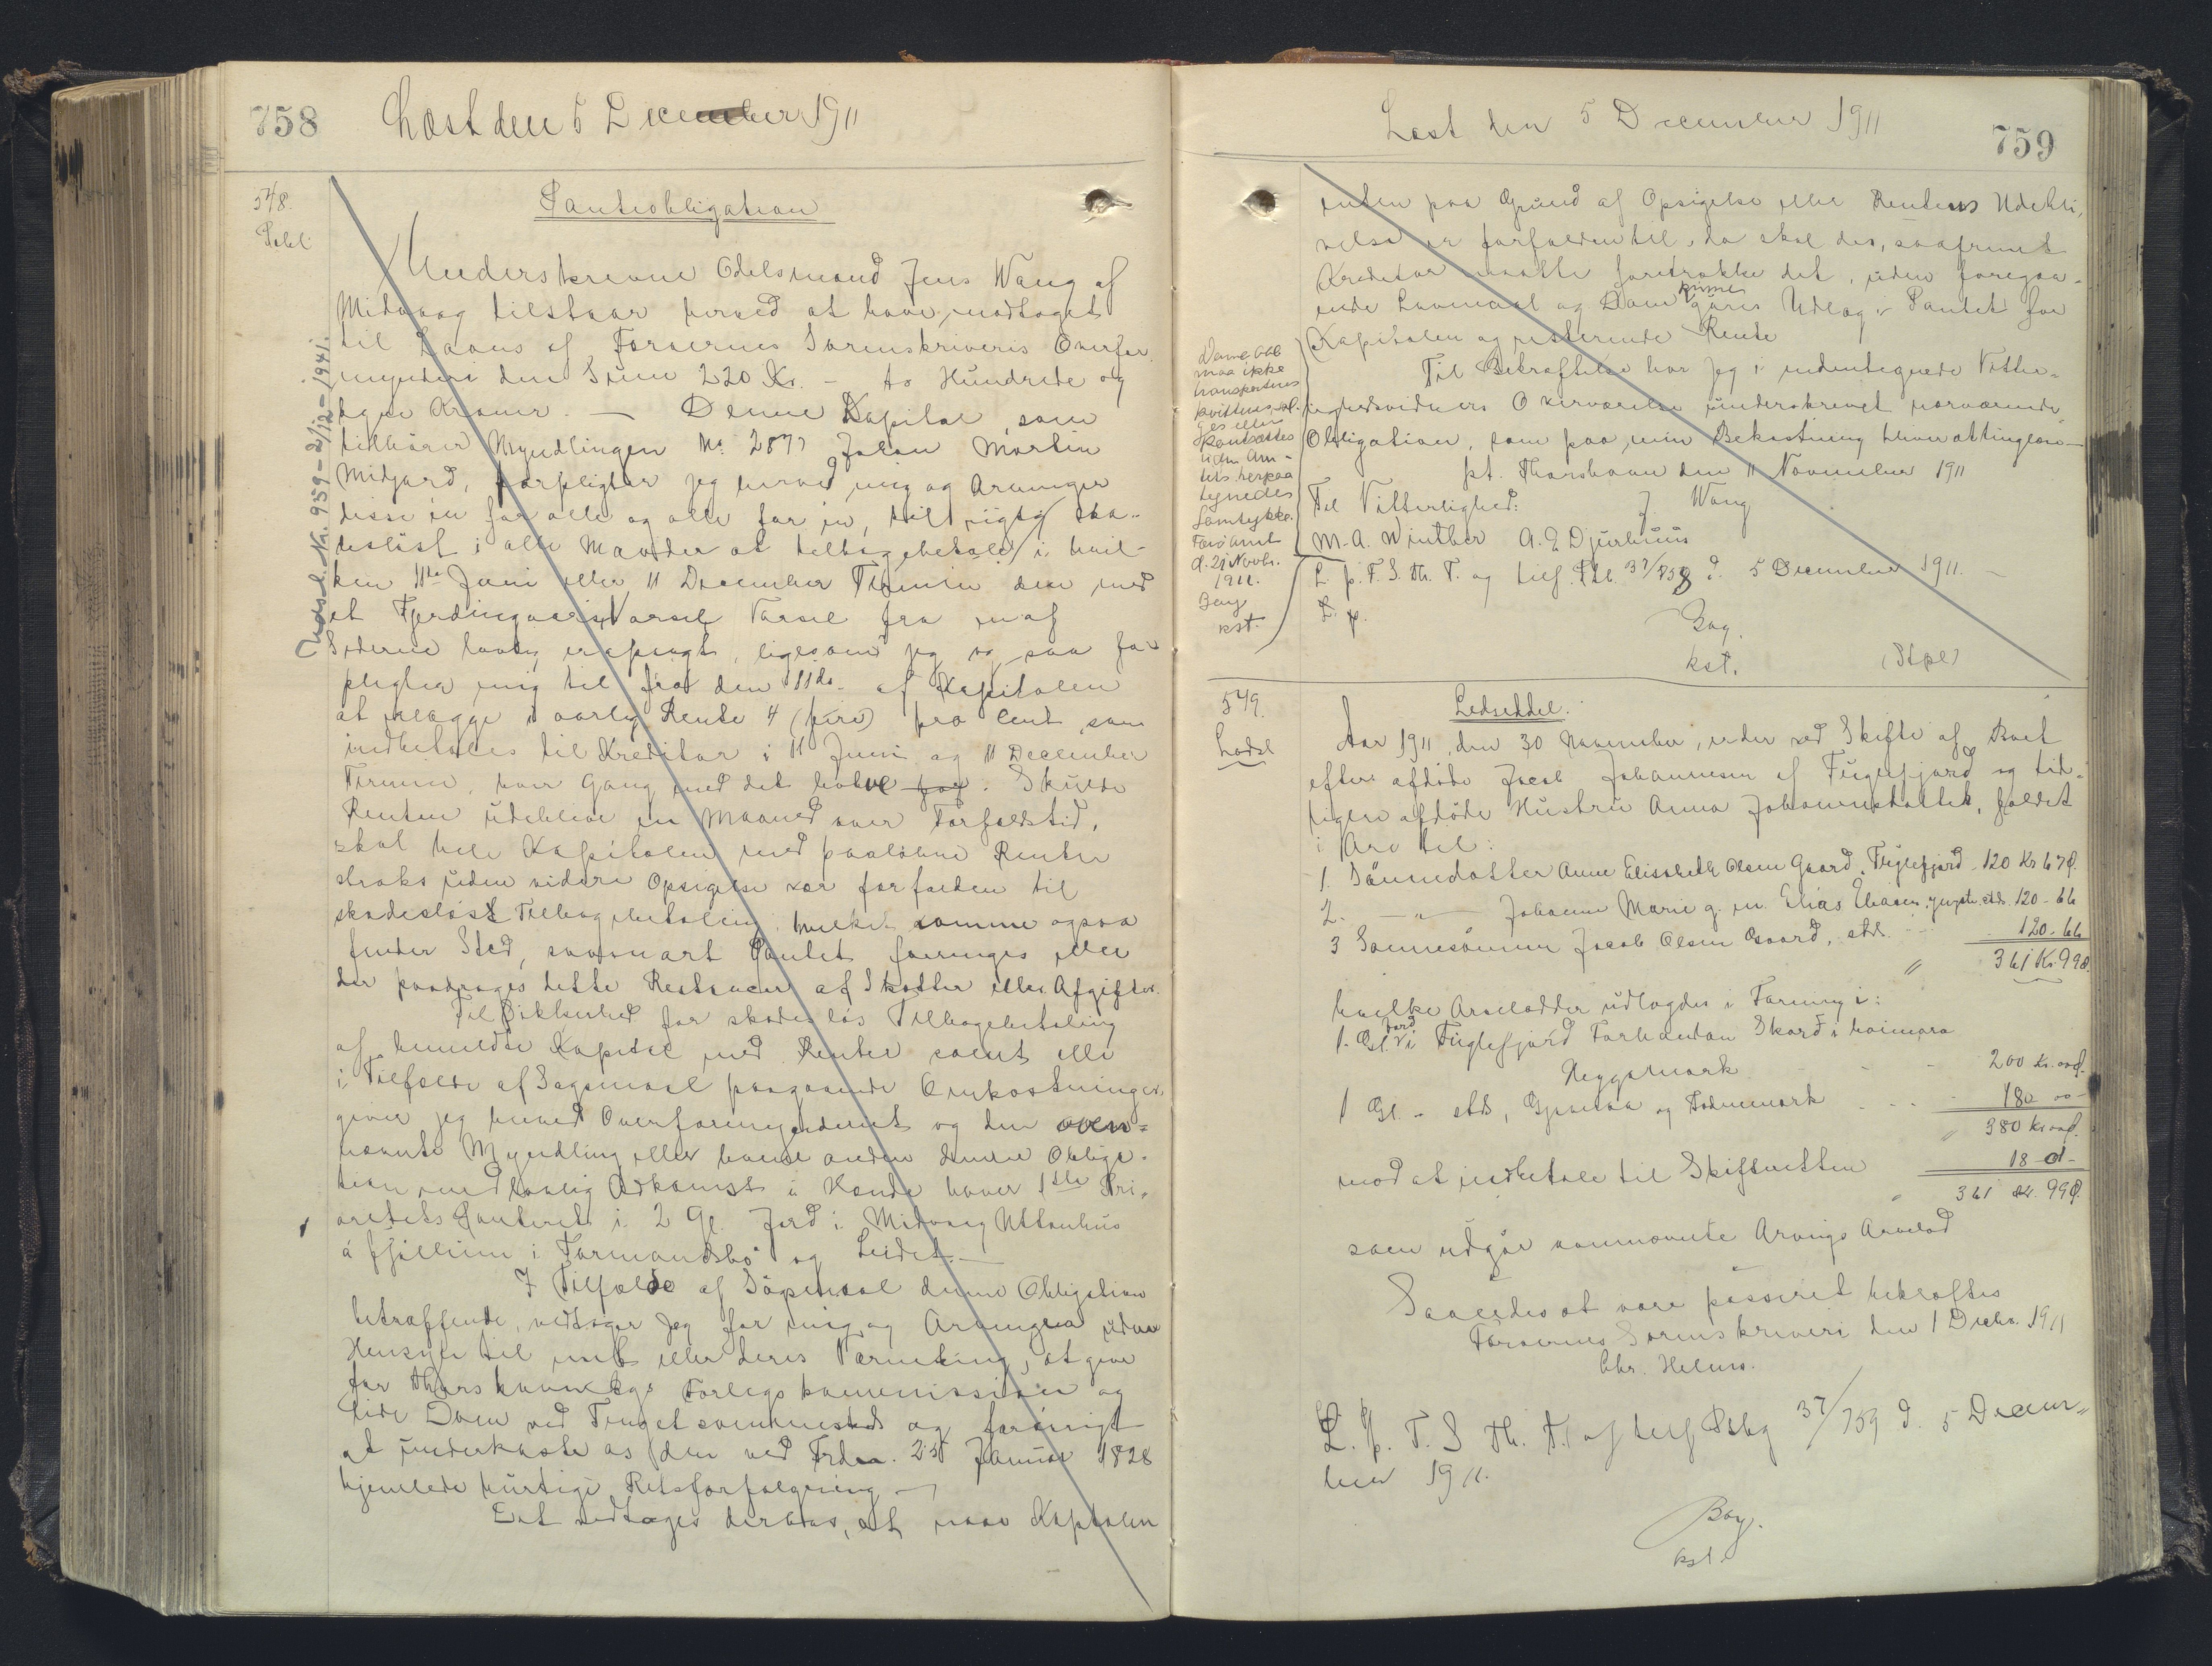 758
Læst den 5 December 1911
548.
Pobl.
Udsl. Nr. 959 - 2/12 - 1941.
Panteobligation
Underskrevne Odelsmand Jens Wang af
Midvaag tilstaar herved at have modtaget
til Laans af Færøernes Sorenskriveris Overfor
mynderi den Sum 220 Kr. - to Hundrede og
tyve Kroner. — Denne Kapital, som
tilhører Myndlingen No. 2877 Joen Martin
Midjord, forpligter jeg herved mig og Arvinger
disse en for alle og alle for en, til rigtig ska-
desløst i alle Maader at tilbagebetale i hvil-
ken 11te Juni eller 11 December Termin den med
et Fjerdingaars Varsel Varsel fra en af
Siderne lovlig er opsagt, ligesom jeg og saa for
pligter mig til fra den 11te af Kapitalen
at erlægge i aarlig Rente 4 (fire) pro Cent, som
indbetales til Kreditor i 11 Juni og 11 December
Termin, hver Gang med det halve. Skulde
Renten udeblive en Maaned over Forfaldstid,
skal hele Kapitalen med paaløbne Renter
straks uden videre Opsigelse være forfalden til
skadesløs Tilbagebetaling, hvilket samme ogsaa
finder Sted, saasnart Pantet forringes eller
der paadrages dette Restancer af Skatter eller Afgifter.
Til Sikkerhed for skadesløs Tilbagebetaling
af bemeldte Kapital med Renter samt alle
i Tilfælde af Sagsmaal paagaaende Omkostninger,
giver jeg herved Overformynderiet og den oven-
nævnte Myndling eller hvem anden denne Obliga-
tion med lovlig Adkomst i Hænde haver 1ste Pri-
oritets Panteret i 2 Gl. Jord i Midvaag Uttanhus
á fjøllum i Formandsbø og Leidet. —
I Tilfælde af Søgsmaal denne Obligation
betræffende, vedtager jeg for mig og Arvinger uden
Hensyn til mit eller deres Værneting, at give
for Thorshavns Forligskommission og
lide Dom ved Tinget sammesteds og forøvrigt
at underkaste os den ved Frdn. 25 Januar 1828
hjemlede hurtige Retsforfølgning —
Ent vedtages derhos, at naar Kapitalen
Læst den 5 December 1911
759
enten paa Grund af Opsigelse eller Rentens Udebli-
velse er forfalden til, da skal der, saafremt
Kreditor maatte foretrække det, uden foregaa-
ende Lovmaal og Dom kunne gøres Udlæg i Pantet for
Kapitalen og resterende Rente
Til Bekræftelse har jeg i undertegnede Vitter-
lighedsvidners Overværelse underskrevet nærværende
Obligation, som paa min Bekostning bliver at tinglæse —
pt. Thorshavn den 11 November 1911
Til Vitterlighed: J. Wang
M. A. Winther A. C. Djurhuus
L. p. F. S. Th. T. og tilf. Ptb. 37/758 d. 5 December 1911. —
L. p.
Bay.
kst.
(Stpl)
Denne Obl
maa ikke
transporteres
kvitteres ud-
ges eller
pantsættes
uden Am-
tets herpaa
tegnedes
Samtykke.
Færø Amt
d. 21 Novbr.
1911.
Bay
kst.
549.
Lodsl
Lodseddel.
Aar 1911, den 30 November, er der ved Skifte af Boet
efter afdøde Jacob Johannesen af Fuglefjord og tid-
ligere afdøde Hustru Anna Johannesdatter, faldet
i Arv til:
1. Sønnedatter Anne Elisabeth Olsen Gaard, Fuglefjord 120 Kr 67 Ø.
2. — " — Johanne Marie g. m. Elias Eliasen, yngste, stds. 120 - 66
3 Sønnesønnen Jacob Olsen Gaard, stds. 120 - 66
" 361 Kr. 99 Ø.
hvilke Arvelodder udlagdes i Farmuy i:
1 Gl. Jord i Fuglefjord Forhandan Skard i heimara
Heyggsmark - - - 200 Kr. oo Ø.
1 Gl. - stds, Gjeraa og Todnesmark - - - 180 oo -
" 380 Kr oo Ø.
mod at indbetale til Skifteretten 18 - 01 -
" 361 Kr. 99 Ø.
som udgør ovennævnte Arvings Arvelod
Saaledes at være passeret bekræftes
Færøernes Sorenskriveri den 1 Decbr. 1911
Chr. Helms.
L. p. F. S Th. T. og tilf Ptbg 37/759 d. 5 Decem-
ber 1911.
Bay.
kst.